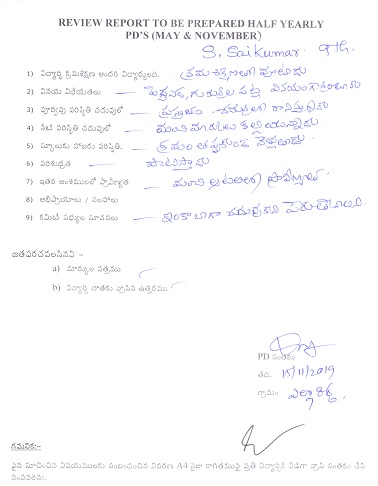 REVIEW REPORT TO BE PREPARED HALF YEARLY
PD'S (MAY & NOVEMBER)
S. Saikumar 9th.
1) విద్యార్థి క్రమశిక్షణ అందరి విద్యార్థులది. క్రమశిక్షణలో వుంటాడు
2) వినయ విధేయతలు పెద్దలకు, గురువుల పట్ల వినయంగా
3) పూర్వపు పరిస్థితి చదువులో ప్రస్తుతం చదువులో
4) నేటి పరిస్థితి చదువులో మంచి మార్కులు కల్గియున్నాడు
5) స్కూలుకు హాజరు పరిస్థితి. క్రమం తప్పకుండ వెళ్తాడు
6) పరిశుభ్రత పాటిస్తాడు
7) ఇతర అంశములలో ప్రావీణ్యత మంచి ఆటలలో ప్రావీణ్యం
8) అభిప్రాయాలు / సలహాలు
9) కమిటీ సభ్యుల సూచనలు ఇంకా బాగా చదువుకుని పైకి
జతపరచవలసినవి -
a) మార్కుల పత్రము
b) విద్యార్థి దాతకు వ్రాసిన ఉత్తరము
PD సంతకం
తేది. 15/11/2019
గ్రామం
గమనిక:-
పైన సూచించిన విషయములకు సంబంధించిన వివరణ A4 సైజు కాగితముపై ప్రతి విద్యార్థికి విడిగా వ్రాసి సంతకం చేసి
పంపవలెను.